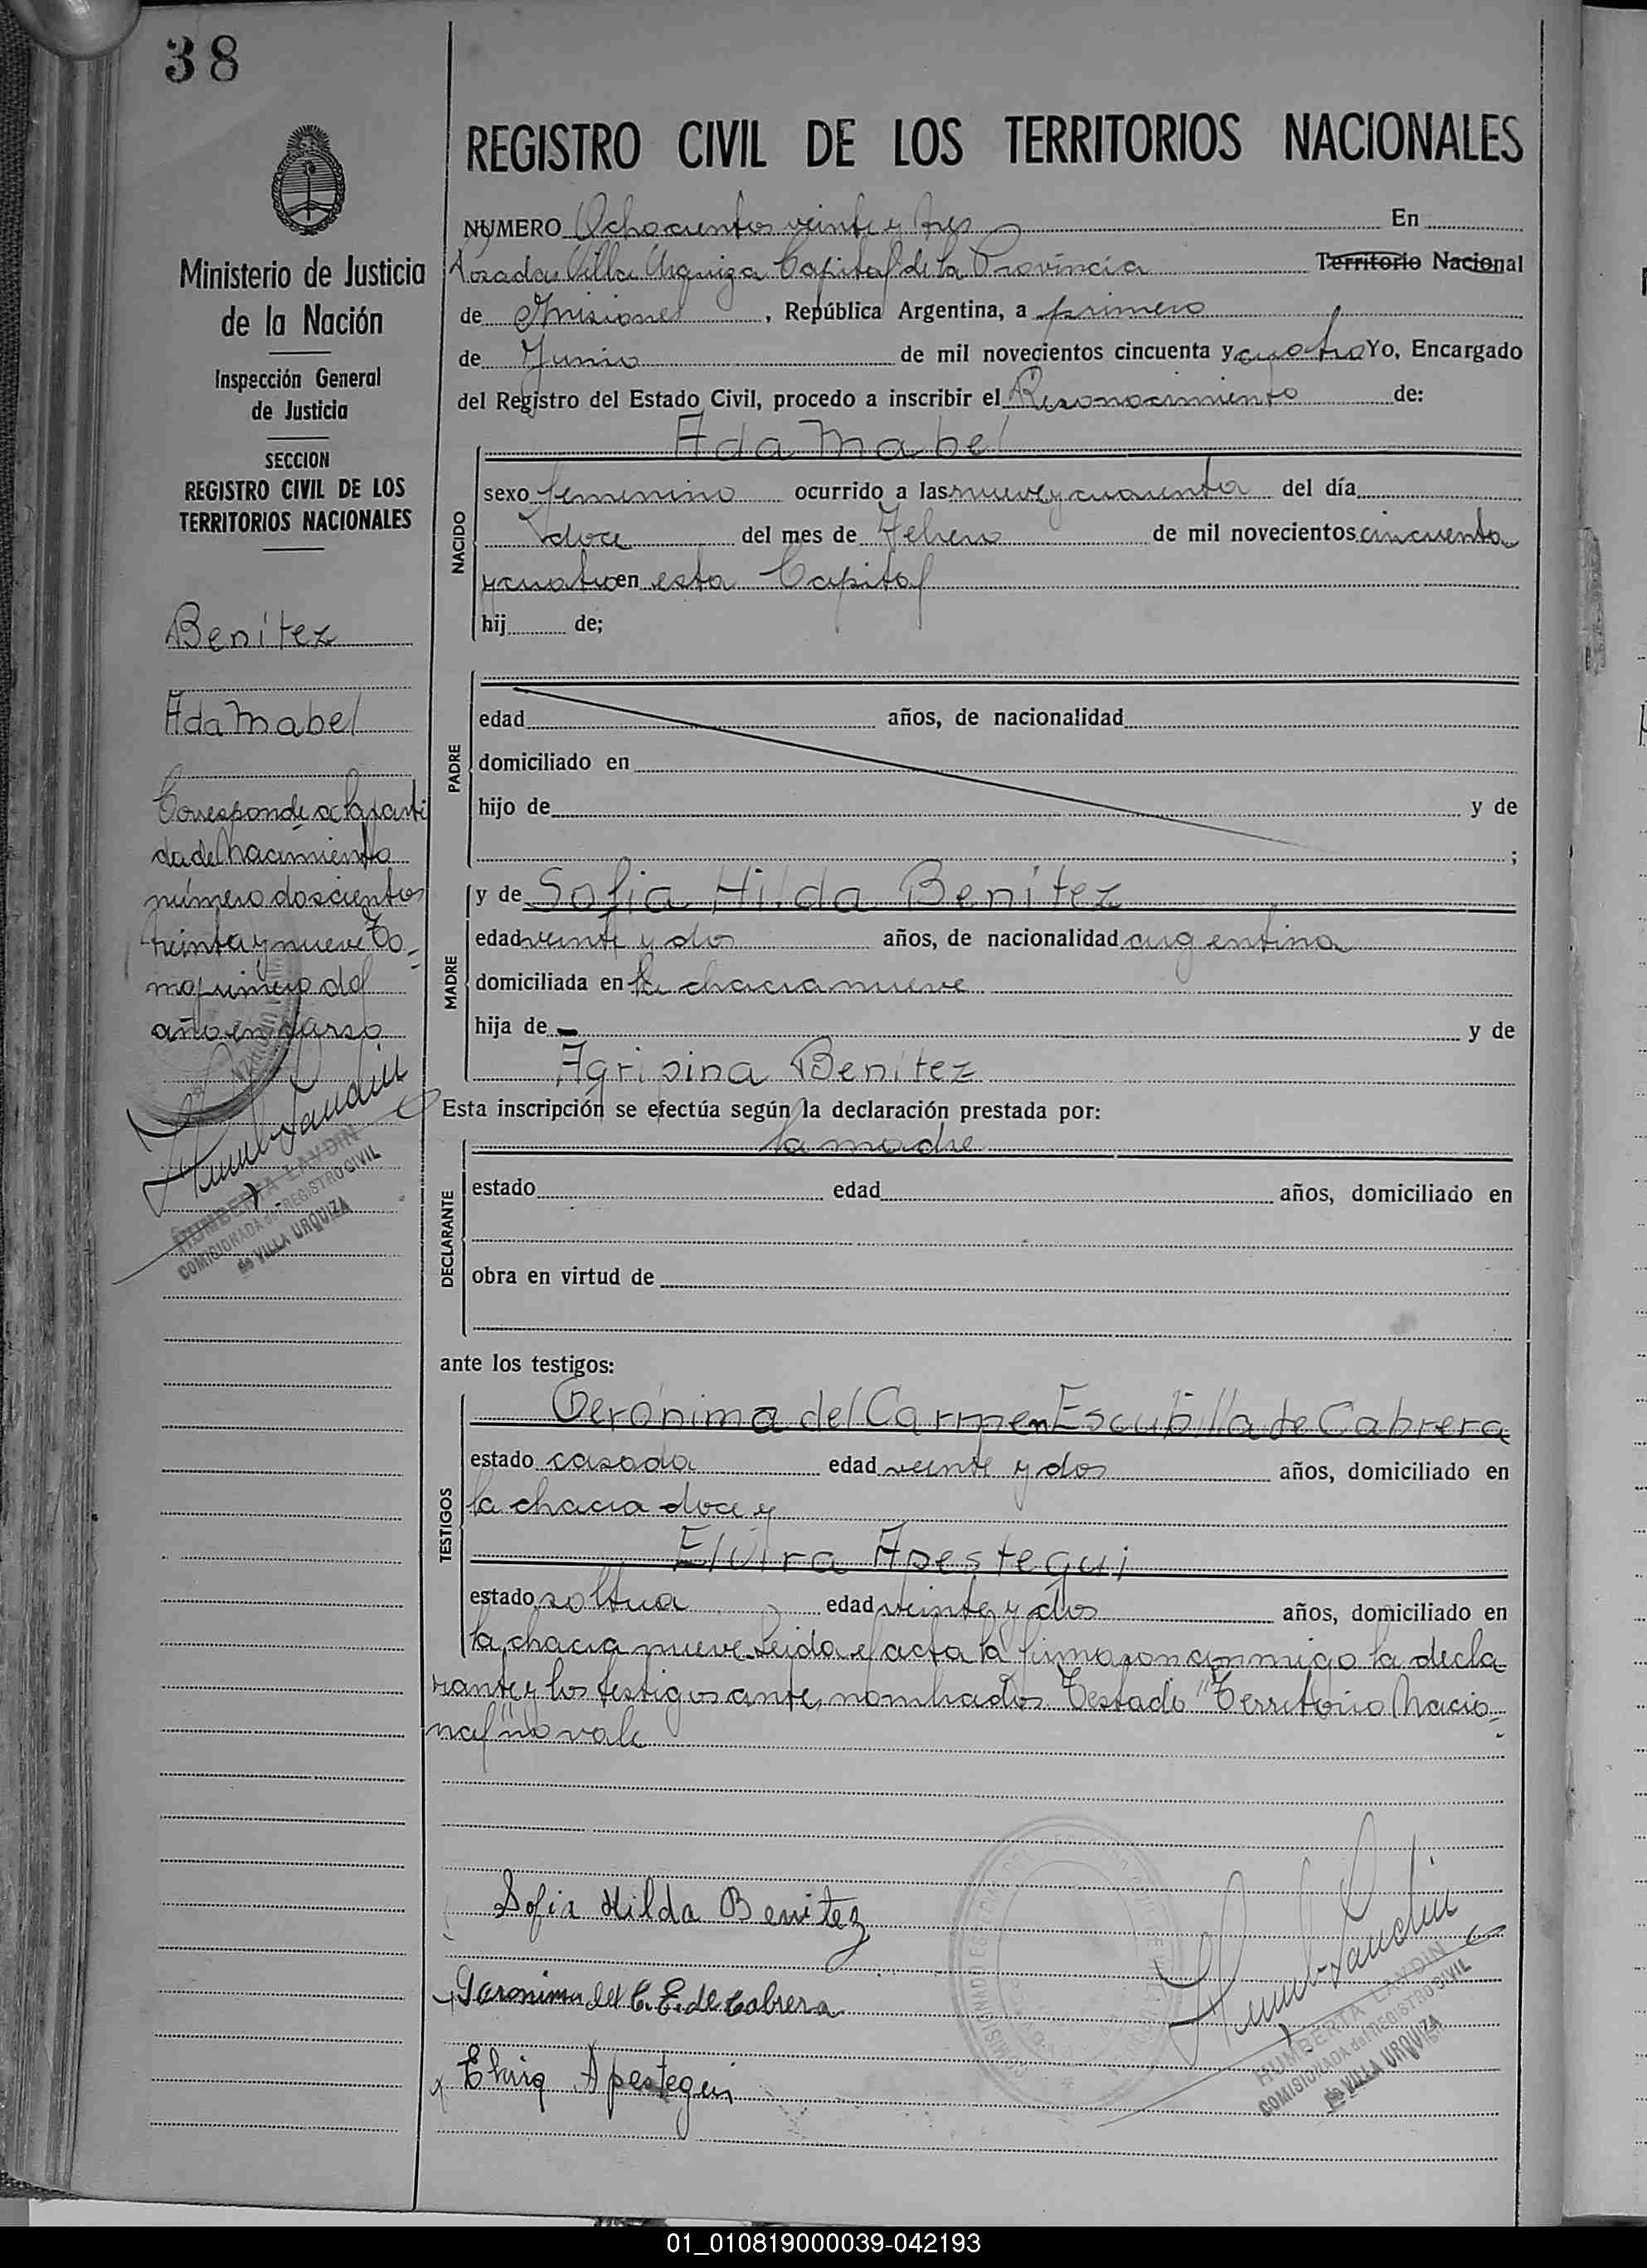 38
REGISTRO CIVIL DE LOS TERRITORIOS NACIONALES
Ministerio de Justicia
de la Nación
Inspección General
de Justicia
SECCION
REGISTRO CIVIL DE LOS
TERRITORIOS NACIONALES
Benítez
Ada Mabel
Corresponde a la parti
da de Nacimiento
número doscientos
treinta y nueve To-
mo primero del
año en curso
Humb Landin
HUMBERTA LANDIN
COMISIONADA del REGISTRO CIVIL
de VILLA URQUIZA
NUMERO Ochocientos veinte y tres En
Posadas Villa Urquiza Capital de la Provincia Territorio Nacional
de Misiones, República Argentina, a primero
de Junio de mil novecientos cincuenta y cuatro Yo, Encargado
del Registro del Estado Civil, procedo a inscribir el Reconocimiento de:
NACIDO
Ada Mabel
sexo femenino ocurrido a las nueve y cuarenta del día
doce del mes de Febrero de mil novecientos cincuenta
y cuatro en esta Capital
hij de;
PADRE
edad años, de nacionalidad
domiciliado en
hijo de y de
;
MADRE
y de Sofia Hilda Benítez
edad veinte y dos años, de nacionalidad argentina
domiciliada en la chacra nueve
hija de — y de
Agripina Benítez
Esta inscripción se efectúa según la declaración prestada por:
DECLARANTE
la madre
estado edad años, domiciliado en
obra en virtud de
ante los testigos:
TESTIGOS
Gerónima del Carmen Escubilla de Cabrera
estado casada edad veinte y dos años, domiciliado en
la chacra doce y
Elvira Apestegui
estado soltera edad veinte y dos años, domiciliado en
la chacra nueve. Leída el acta la firmaron conmigo la decla
rante y los testigos antes nombrados. Testado "Territorio Nacio-
nal" no vale
Sofia Hilda Benitez
Geronima del C. E. de Cabrera
Elvira Apestegui
Humb Landin
HUMBERTA LANDIN
COMISIONADA del REGISTRO CIVIL
de VILLA URQUIZA
01_010819000039-042193